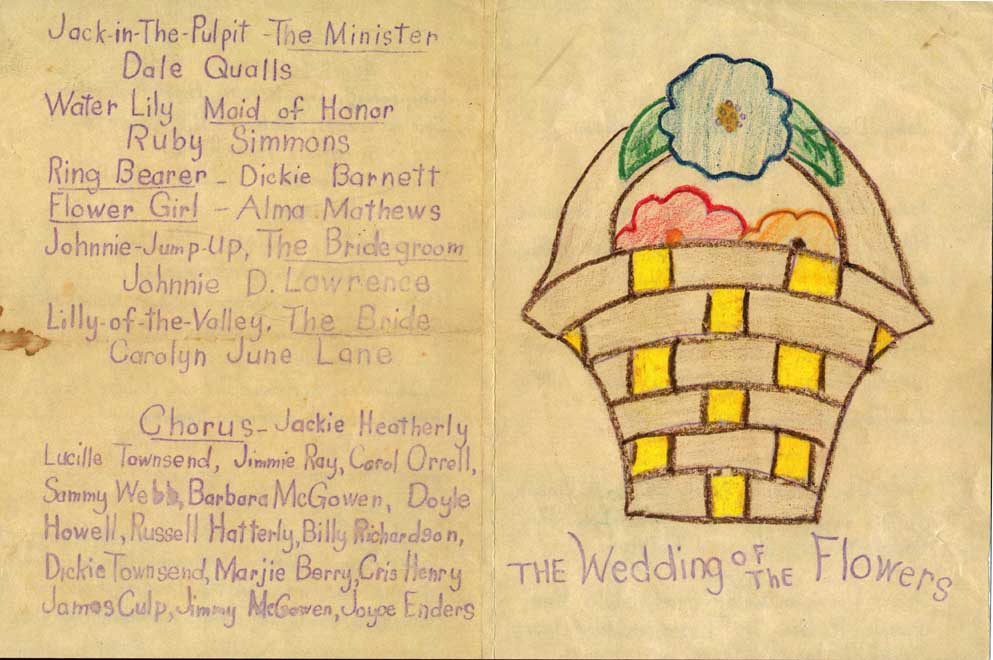 Jack-in-The-Pulpit - The Minister
Dale Qualls
Water Lily Maid of Honor
Ruby Simmons
Ring Bearer - Dickie Barnett
Flower Girl - Alma Mathews
Johnnie-Jump-Up, The Bridegroom
Johnnie D. Lawrence
Lilly-of-the-Valley, The Bride
Carolyn June Lane
Chorus - Jackie Heatherly
Lucille Townsend, Jimmie Ray, Carol Orrell,
Sammy Webb, Barbara McGowen, Doyle
Howell, Russell Hatterly, Billy Richardson,
Dickie Townsend, Marjie Berry, Cris Henry
James Culp, Jimmy McGowen, Joyce Enders
THE Wedding OF THE Flowers